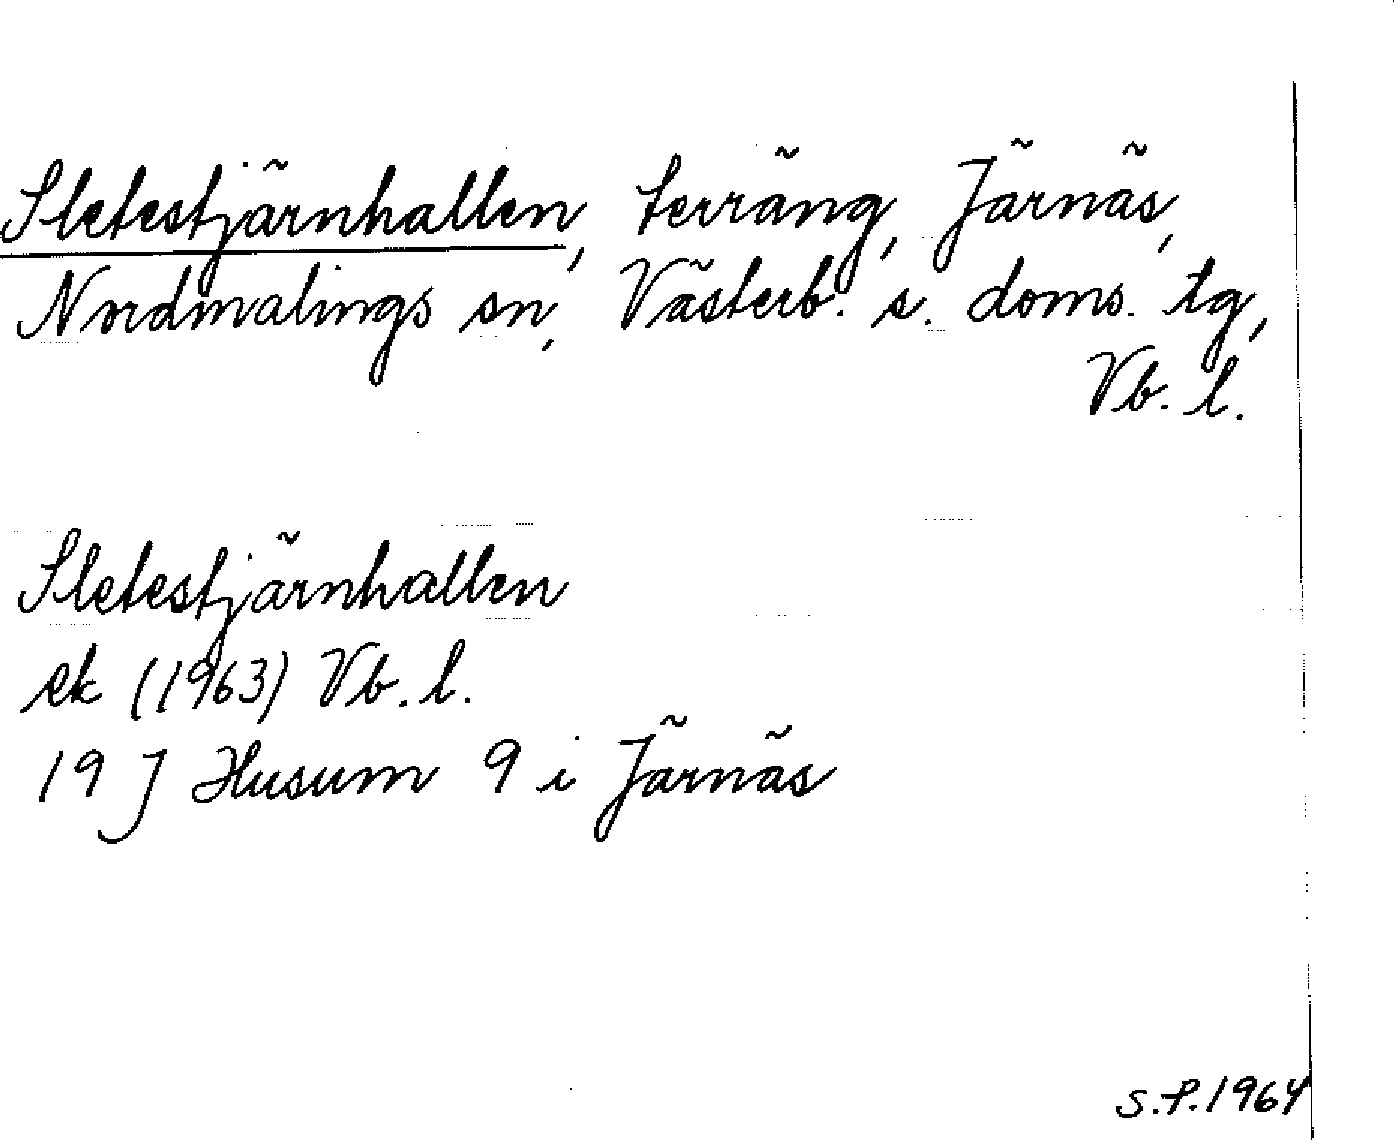 Sletestjärnhallen, terräng, Järnäs,
Nordmalings sn, Västerb. s. doms. tg,
Vb. l.
Sletestjärnhallen
ek (1963) Vb. l.
19 J Husum 9 i Järnäs
S.P. 1964